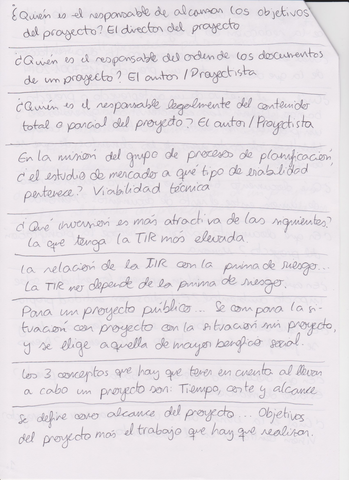 ¿Quién es el responsable de alcanzar los objetivos
del proyecto? El director del proyecto
¿Quién es el responsable del orden de los documentos
de un proyecto? El autor / Proyectista
¿Quién es el responsable legalmente del contenido
total o parcial del proyecto? El autor / Proyectista
En la misión del grupo de procesos de planificación,
¿el estudio de mercados a qué tipo de viabilidad
pertenece? Viabilidad técnica
¿Qué inversión es más atractiva de las siguientes?
La que tenga la TIR más elevada
La relación de la TIR con la prima de riesgo...
La TIR no depende de la prima de riesgo.
Para un proyecto público... Se compara la si-
tuación con proyecto con la situación sin proyecto,
y se elige aquella de mayor beneficio social.
Los 3 conceptos que hay que tener en cuenta al llevar
a cabo un proyecto son: Tiempo, coste y alcance
Se define como alcance del proyecto... Objetivos
del proyecto más el trabajo que hay que realizar.